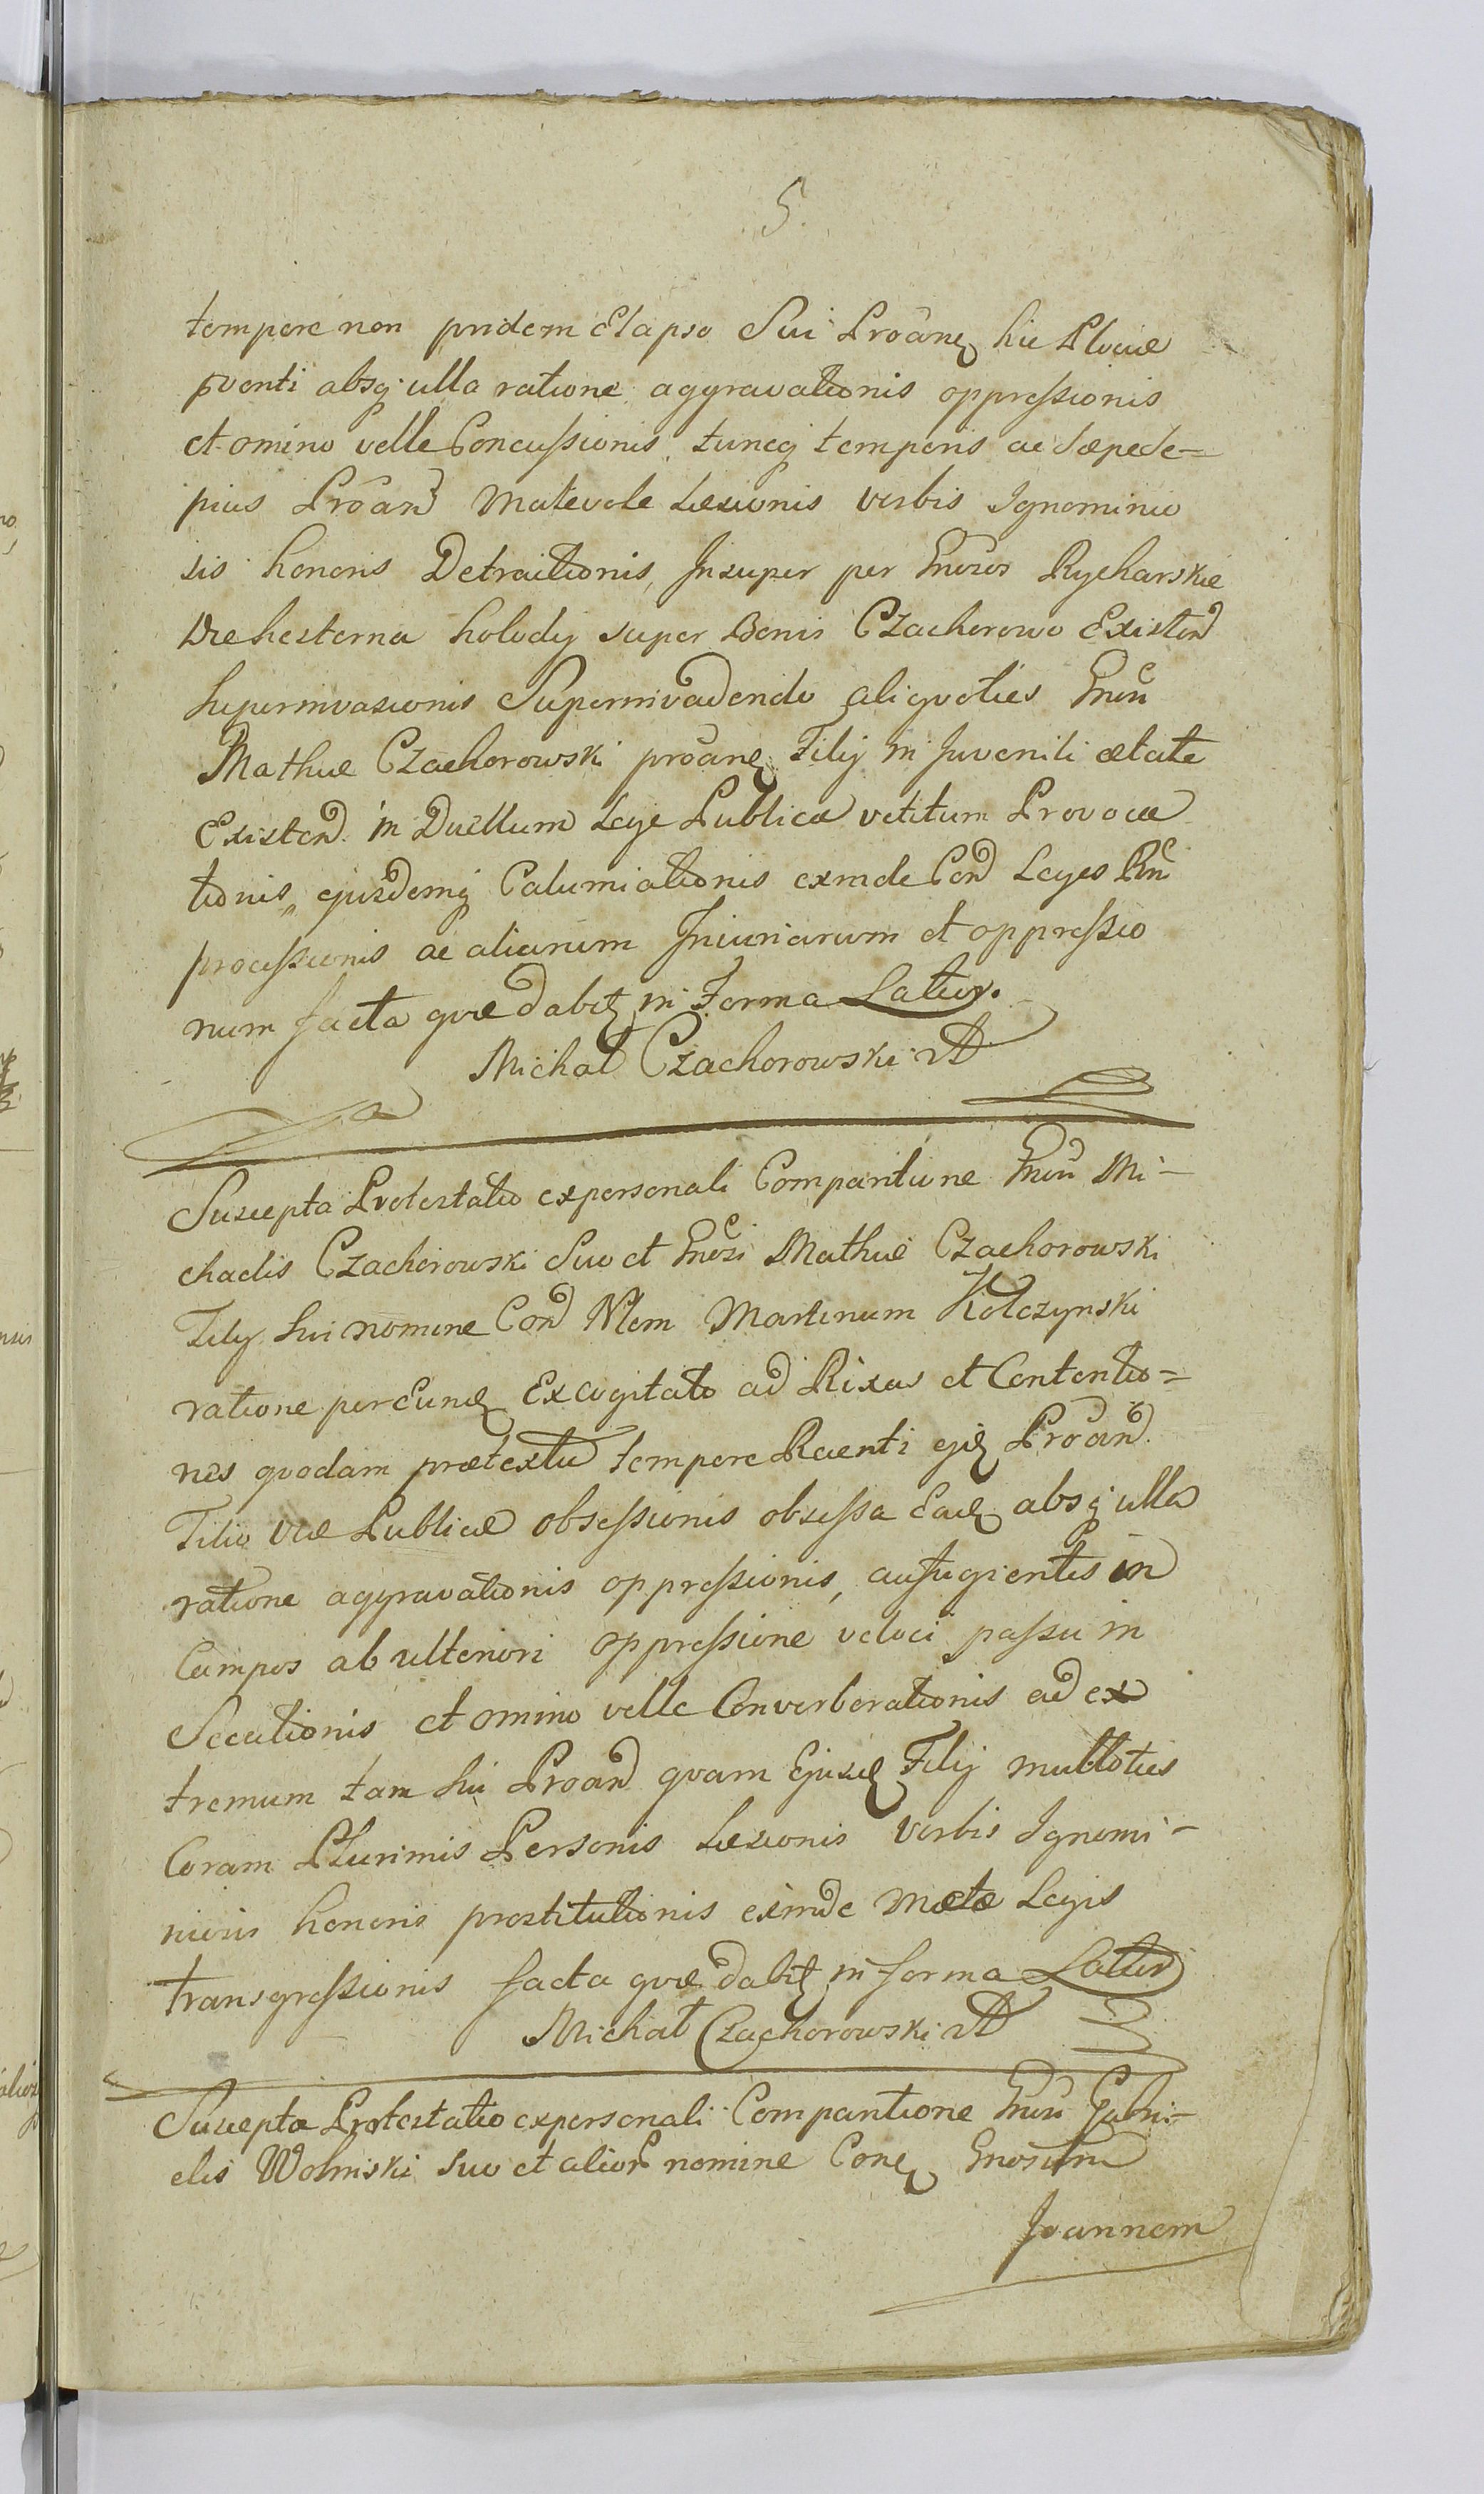 5.
tempore non pridem Elapso Sui Proãnę hic Plociæ
pventi absq; ulla ratione aggravationis oppreſsionis
et omino velle Concuſsionis, tuncq; temporis ac sæpede=
pius Proãnd Malevole Læsionis verbis Ignominio
sis honoris Detractionis, Insuper per Gnẽros Rycharskie
Die hesterna holodij super Bonis Czachorowo Existend
superinvasionis Superinvadendo aliqvoties Gnẽri
Mathiæ Czachorowski proãnę Filij in Juvenili ætate
Existend. in Duellum Lege Publica vetitum Provoca
tionis, ejusdemq; Calumiationis exinde Con̄d Leges Rñi
proceſsionis ac aliarum Iniuriarum et oppreſsio
num facta qvæ dabitȩ in Forma Latior.
Michał Czachorowski
Suscepta Protestatio expersonali Comparitione Gnẽri Mi-
chaelis Czachorowski Suo et Gnẽrosi Mathiæ Czachorowski
Filij sui nomine Con̄d Nlem Martinum Kolczynski
ratione per Eundȩ Excogitato ad Rixas et Contentio=
nes qvodam prætextu tempore Recenti ejȩ Proãnd
Filio viæ Publicæ obseſsionis obseſsa Eadȩ absq; ulla
ratione aggravationis oppreſsionis, aufugientis in
Campos ab ulteriori oppreſsione veloci paſsu in
Secutionis et omino velle Converberationis ad ex
tremum tam sui Proand qvam Ejusdȩ Filij multoties
Coram Plurimis Personis Læsionis verbis Ignomi-
niosis honoris prostitutionis exinde Metæ Legis
transgreſsionis facta qvæ dabitȩ in forma Latior
Michał Czachorowski
Suscepta Protestatio expersonali Comparitione Gnẽri Gabri-
elis Wolmski suo et alior nomine Conȩ Gnẽrosum
Joannem